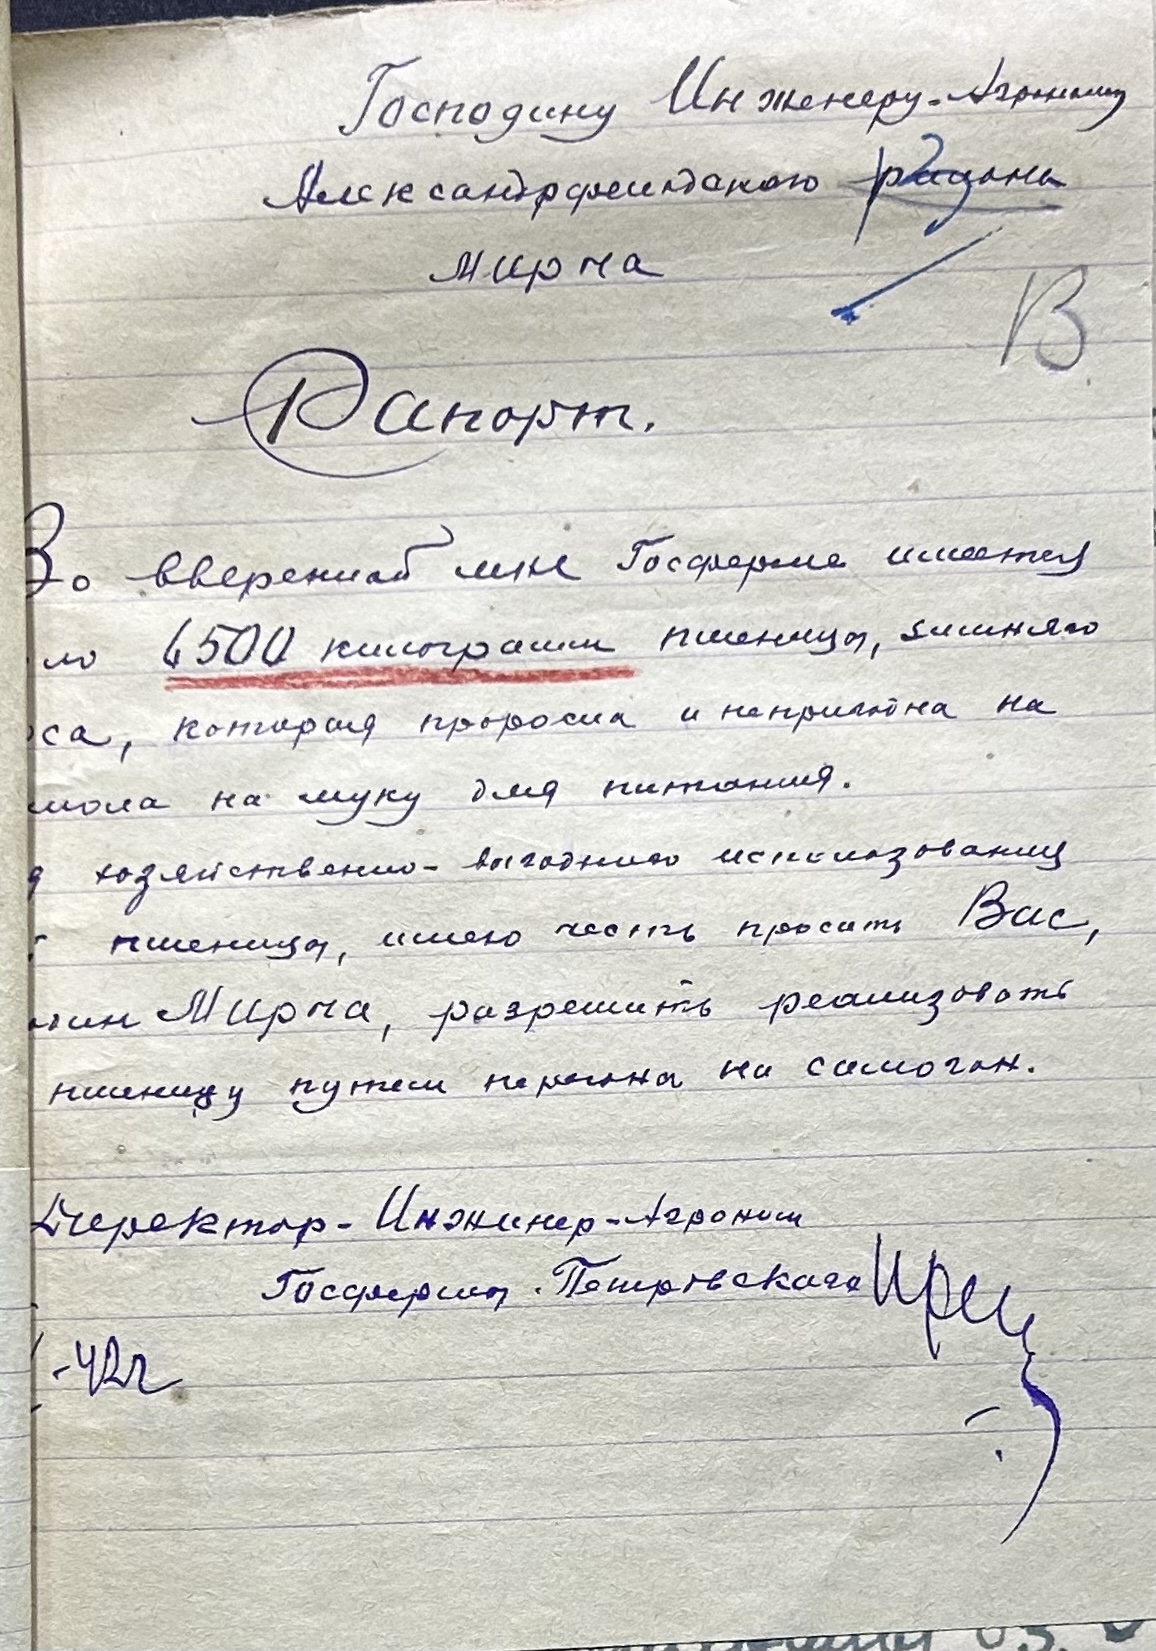 Господину Инженеру-Агроному
Александрфельдского района
Мирча
В
Рапорт.
Во вверенной мне Госферме имеется
ло 4500 килограмм пшеницы, зимняго
са, которая проросла и непригодна на
мола на муку для питания.
я хозяйственно-выгоднаго использования
пшеницы, имею честь просить Вас,
один Мирча, разрешить реализовать
пшеницу путем перегона на самогон.
Директор-Инжинер-Агроном
Госфермы Петровскаго
-42г